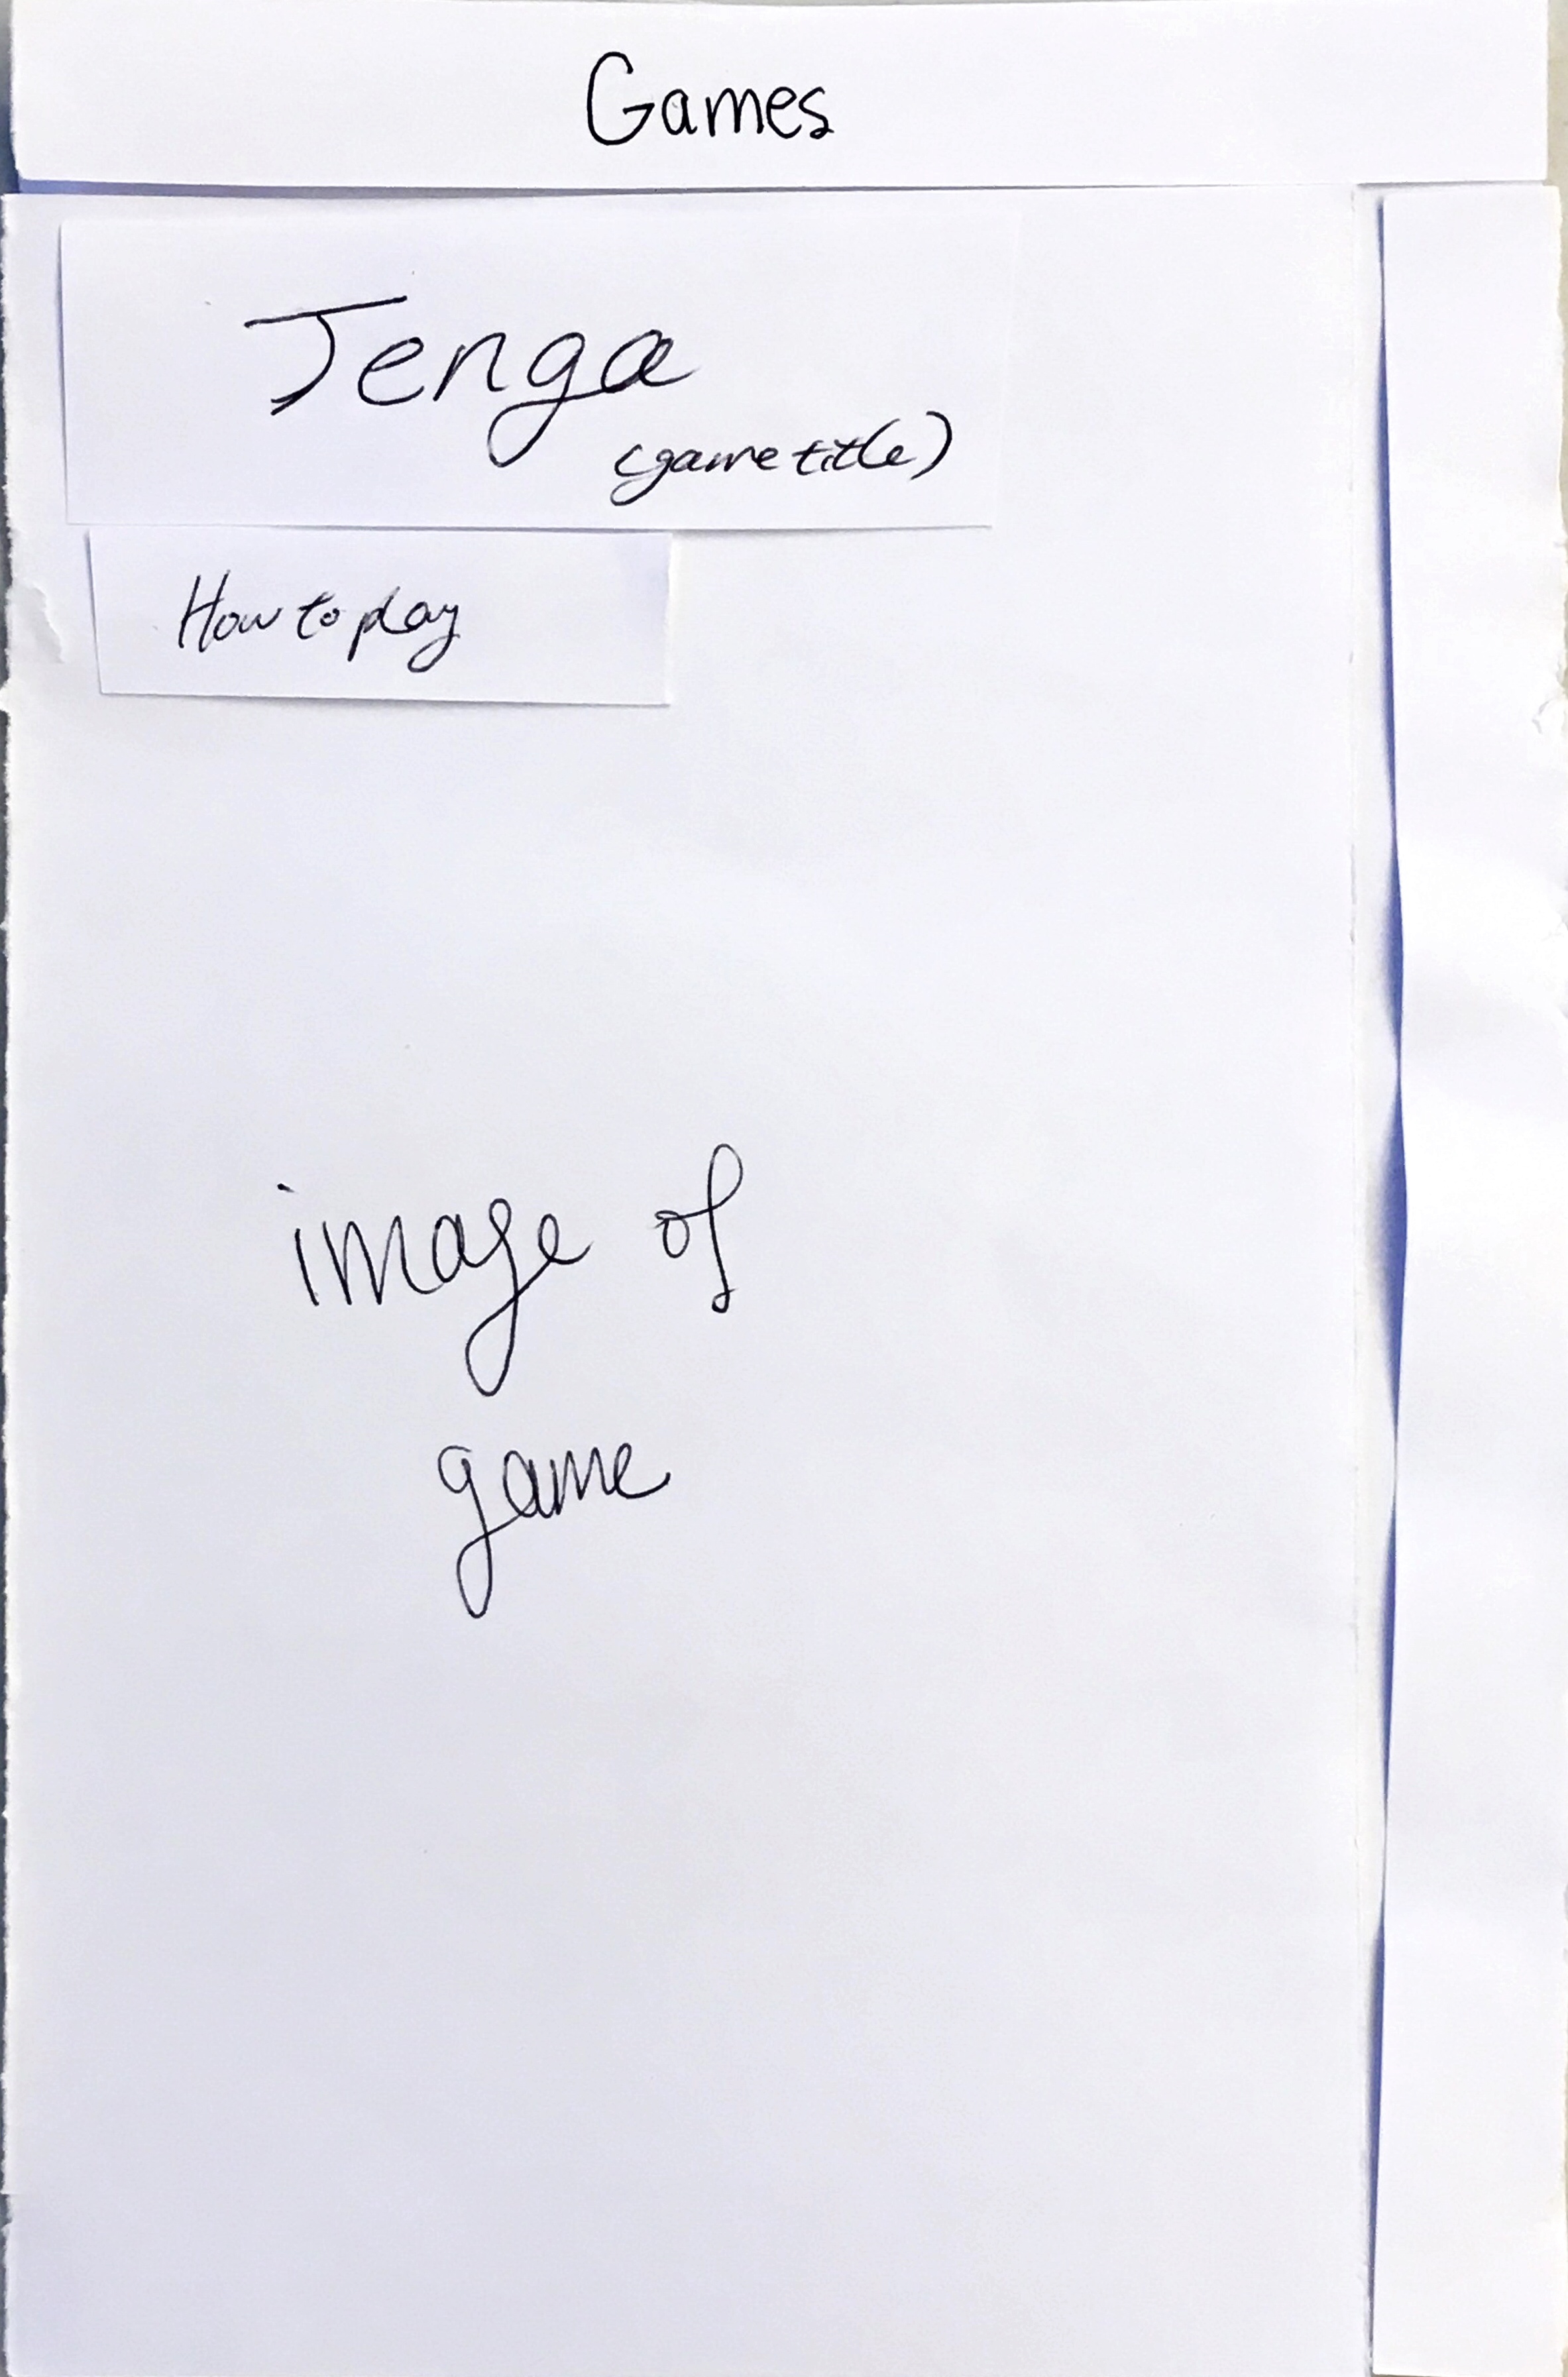 Games
Jenga
(game title)
How to play
image of
game